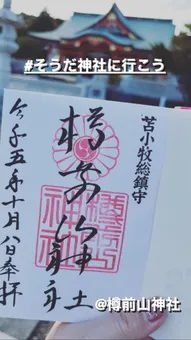 #そうだ神社に行こう
苫小牧総鎮守
樽前山神社
令和五年十月八日奉拝
@樽前山神社